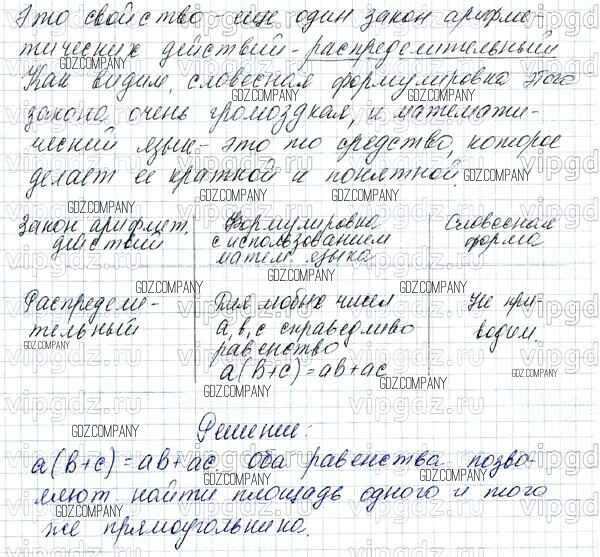 Это свойство - еще один закон арифме-
тических действий - распределительный
Как видим, словесная формулировка этого
закона очень громоздкая, и математи-
ческий язык - это то средство, которое
делает ее краткой и понятной.
Закон арифмет. действий
Формулировка с использованием матем. языка
Словесная форма
Распредели-
тельный
Для любых чисел
а, в, с справедливо
равенство
а(в+с)=ав+ас
Не при-
водим.
Решение:
а(в+с)=ав+ас. Оба равенства позво-
ляют найти площадь одного и того
же прямоугольника.
GDZ.COMPANY
vipgdz.ru